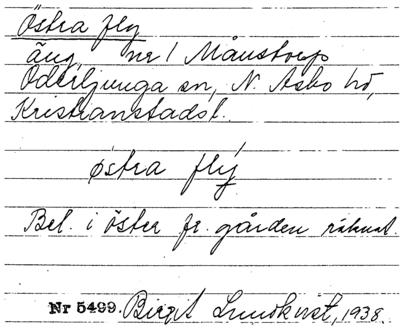 Östra fly
äng, nr 1 Månstorp
Oderljunga sn, N. Åsbo hd,
Kristianstads l.
östra flý
Bel. i öster fr. gården räknat.
Nr 5499. Birgit Lundkvist, 1938.